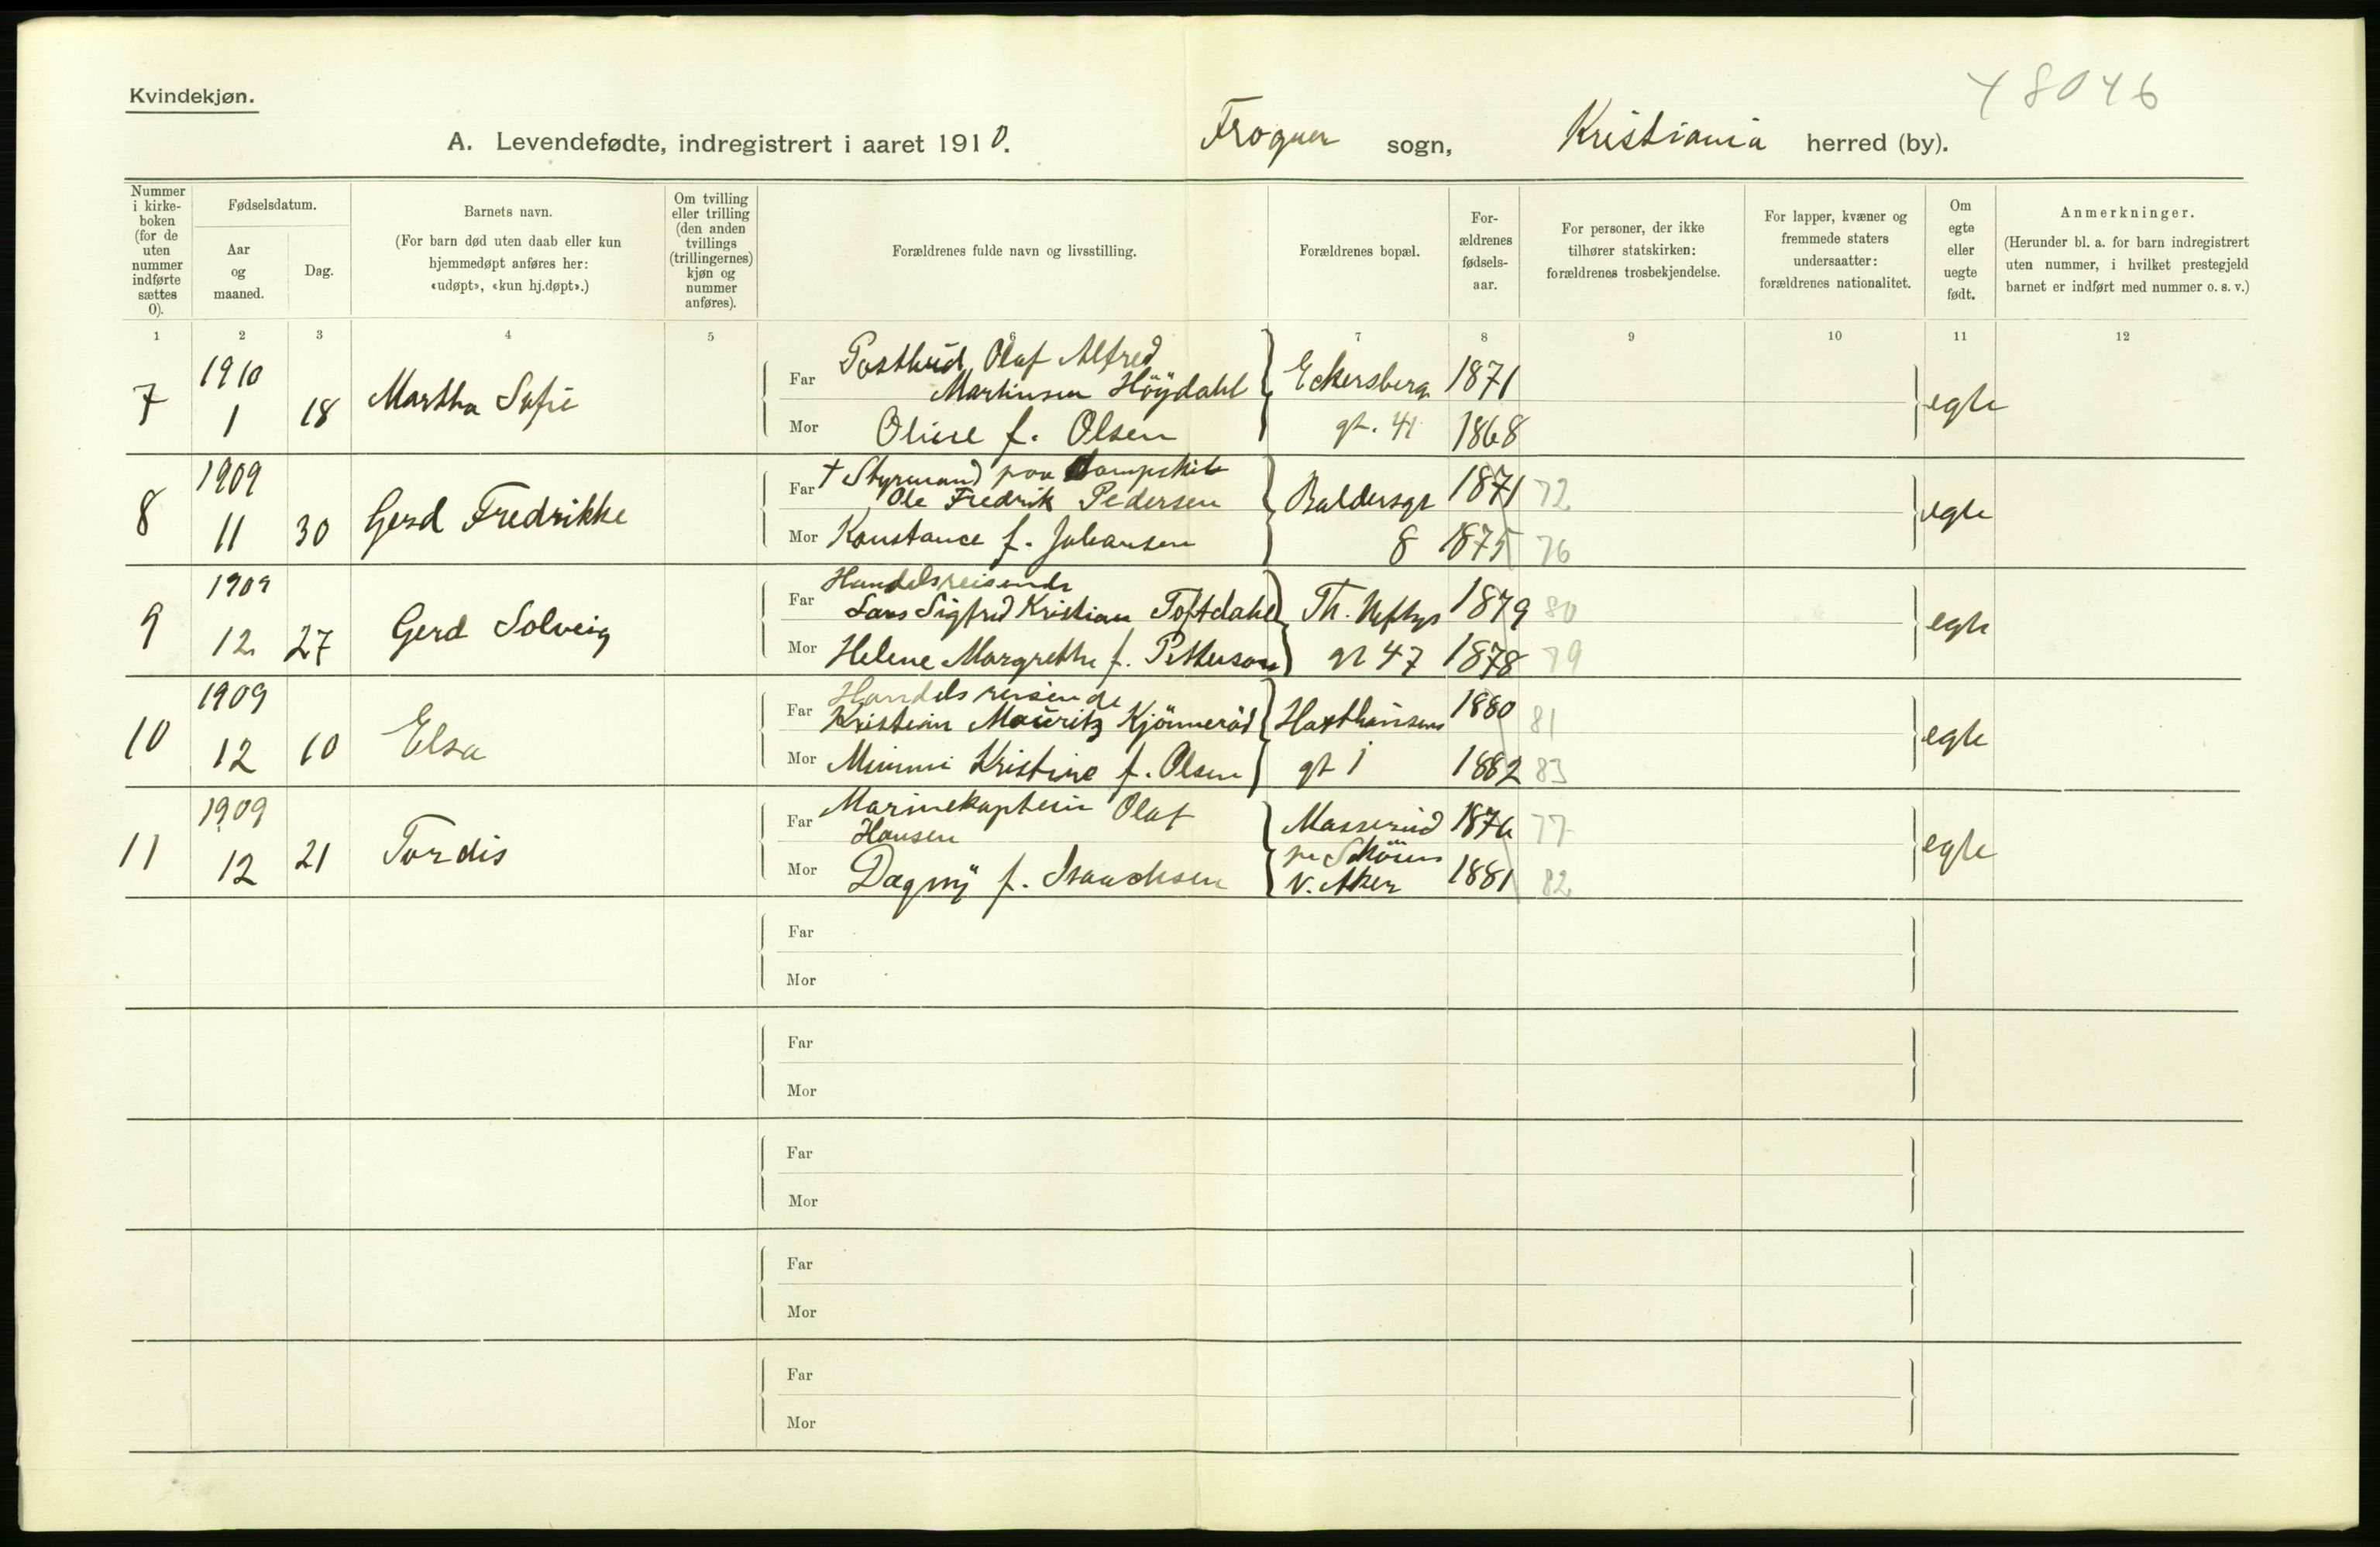 Kvindekjøn.
48046
A. Levendefødte, indregistrert i aaret 1910. Frogner sogn, Kristiania herred (by).
Nummer i kirke-boken (for de uten nummer indførte sættes 0).
Fødselsdatum.
Aar og maaned.
Dag.
Barnets navn.
(For barn død uten daab eller kun hjemmedøpt anføres her: «udøpt», «kun hj.døpt».)
Om tvilling eller trilling (den anden tvillings (trillingernes) kjøn og nummer anføres).
Forældrenes fulde navn og livsstilling.
Forældrenes bopæl.
For-ældrenes fødsels-aar.
For personer, der ikke tilhører statskirken: forældrenes trosbekjendelse.
For lapper, kvæner og fremmede staters undersaatter: forældrenes nationalitet.
Om egte eller uegte født.
Anmerkninger.
(Herunder bl. a. for barn indregistrert uten nummer, i hvilket prestegjeld barnet er indført med nummer o. s. v.)
1 2 3 4 5 6 7 8 9 10 11 12
7 1910 1 18 Martha Sofie
Far Postbud Olaf Alfred
Martinsen Höydahl Eckersberg 1871
Mor Oline f. Olsen gt. 41 1868 egte
8 1909 11 30 Gerd Fredrikke
Far † Styrmand paa dampskib
Ole Fredrik Pedersen Baldersgt 1871 72
Mor Konstance f. Johansen 8 1875 76 egte
9 1909 12 27 Gerd Solveig
Far Handelsreisende
Lars Sigfred Kristian Toftdahl Th. Heftys 1879 80
Mor Helene Margrethe f. Petterson gt 47 1878 79 egte
10 1909 12 10 Elsa
Far Handelsreisende
Kristian Mauritz Kjönneröd Haxthausens 1880 81
Mor Mimmi Kristine f. Olsen gt 1 1882 83 egte
11 1909 12 21 Tordis
Far Marinekaptein Olaf
Hansen Masserud 1876 77
pr Sköien
Mor Dagny f. Isaachsen V. Aker 1881 82 egte
Far
Mor
Far
Mor
Far
Mor
Far
Mor
Far
Mor